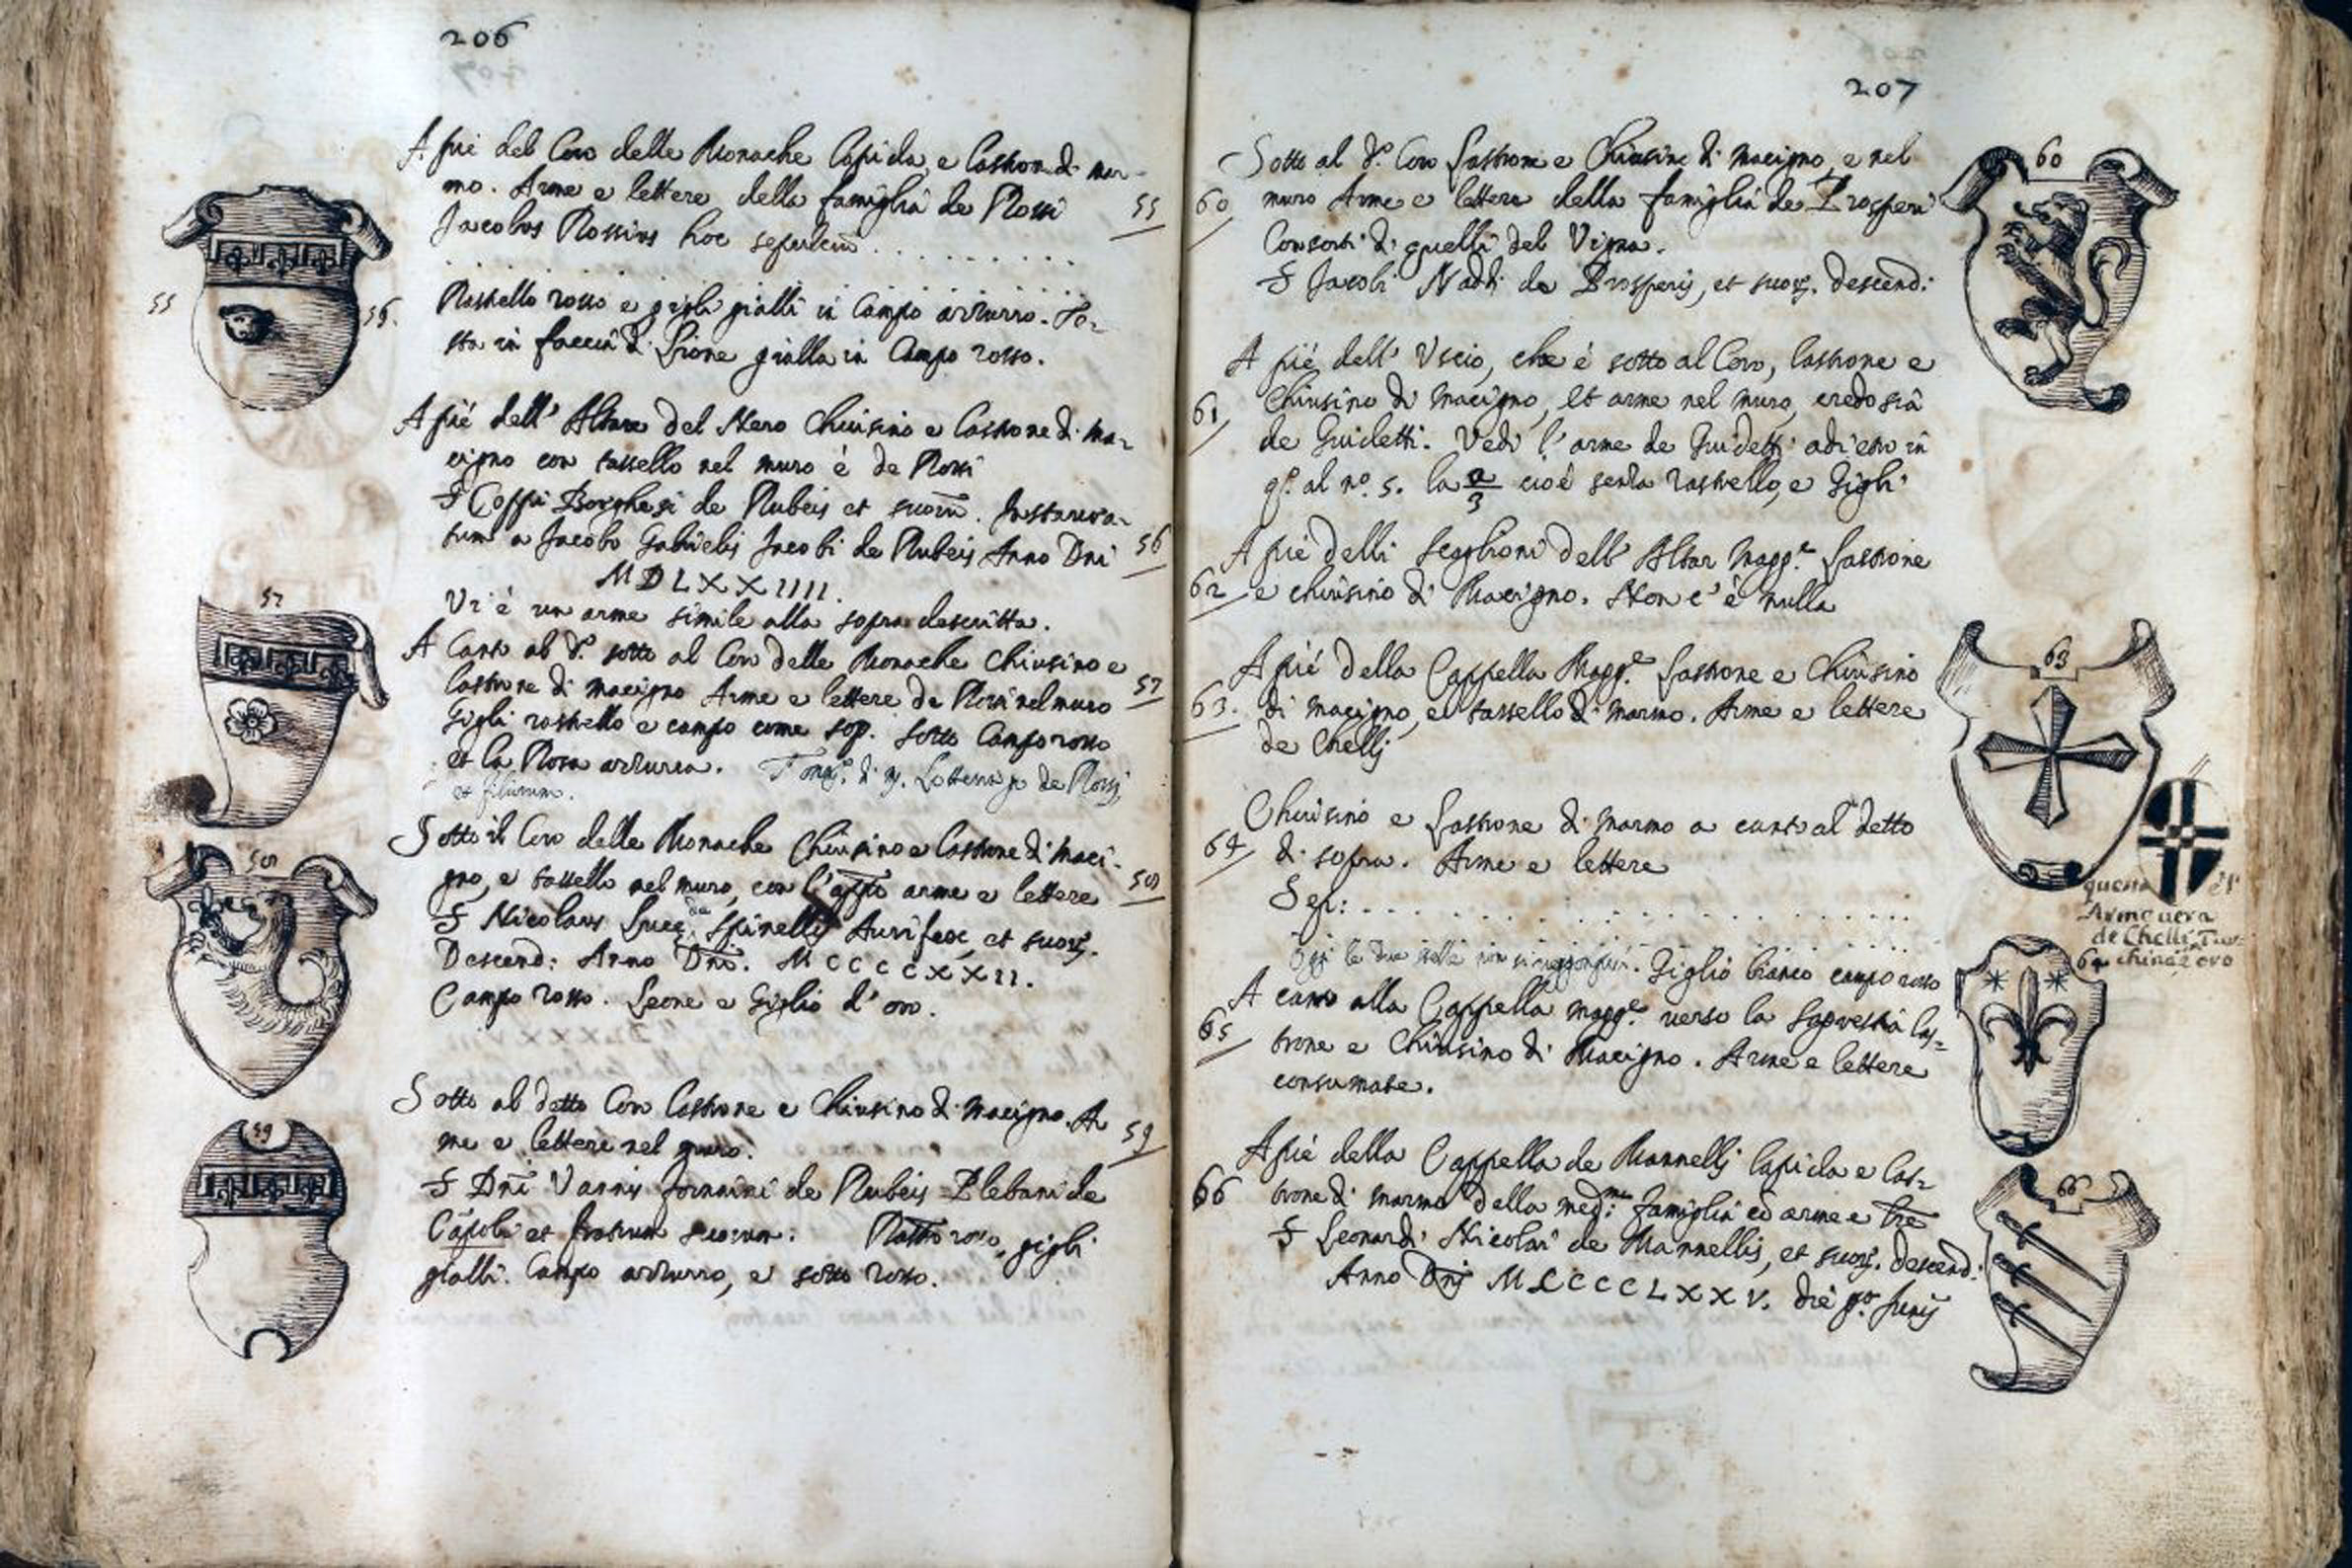 206
A piè del Coro delle Monache Lapida, e Lastron di mar-
mo. Arme e lettere della famiglia de Rossi
55
Jacobus Rossius hoc sepulcrū . . . . . . . . .
. . . . . . . . . . . . . . . .
55
56.
Rastello rosso e gigli gialli in Campo azzurro. Te-
sta in faccia di Lione gialla in Campo rosso.
A piè dell' Altare del Nero Chiusino e Lastrone di ma-
cigno con tassello nel muro è de Rossi
S Coppi Borghesi de Rubeis et suorū. Instaura-
tum a Jacobo Gabrielis Jacobi de Rubeis Anno Dni
56
MDLXXIIII.
Vi è un arme simile alla sopra descritta.
57
A Canto al dº. sotto al Coro delle Monache Chiusino e
Lastrone di macigno Arme e lettere de Rossi nel muro
57
Gigli rastello e campo come sop. sotto Campo rosso
et la Rosa azzurra. de Rossi
et filiorum.
58
Sotto il Coro delle Monache Chiusino e Lastrone di maci-
gno, e tassello nel muro, con l'appª arme e lettere
58
S Nicolaus Luce de Spinelli Aurifex, et suoꝝ.
Descend: Anno Dni. MCCCCXXII.
Campo rosso. Leone e Giglio d' oro.
59
Sotto al detto Coro Lastrone e Chiusino di macigno. Ar
me e lettere nel muro.
59
S Dni Vannis fornaini de Rubeis Plebani de
Cāpoli et fratrum suorum: Rastº rosso, gigli
gialli. Campo azzurro, e sotto rosso.
207
60
Sotto al dº. Coro Lastrone e Chiusino di macigno, e nel
60
muro Arme e lettere della famiglia de Prosperi
Consorti di quelli del Vigna.
S Jacobi Naddi de Prosperis, et suoꝝ. descend:
A piè dell' Uscio, che è sotto al Coro, lastrone e
61
Chiusino di macigno, et arme nel muro, credo sia
de Guidetti. Vedi l'arme de Guidetti adietro in
qº. al nº. 5. la a/3 cioè senza rastrello, e Gigli
A piè delli scaglioni dell' Altar Maggre Lastrone
62
e chiusino di Macigno. Non c'è nulla
63
A piè della Cappella Maggre. Lastrone e Chiusino
63.
di macigno, e tassello di marmo. Arme e lettere
de Chelli
Chiusino e Lastrone di marmo a canto al detto
64
di sopra. Arme e lettere
questa è l'
Arme vera
de Chelli Tur-
china e oro
Sep: . . . . . . . . . . . . . . .
64
Oggi le due stelle non si veggon più. Giglio bianco campo rosso
A canto alla Cappella maggre. verso la Sagrestia las-
65
trone e Chiusino di Macigno. Arme e lettere
consumate.
A piè della Cappella de Mannelli lapida e las-
66
66
trone di marmo della medma: famiglia cō arme e lre
S Leonardi Nicolai de Mannellis, et suoꝝ. descend:
Anno Dni MCCCCLXXV. die pº. Junij